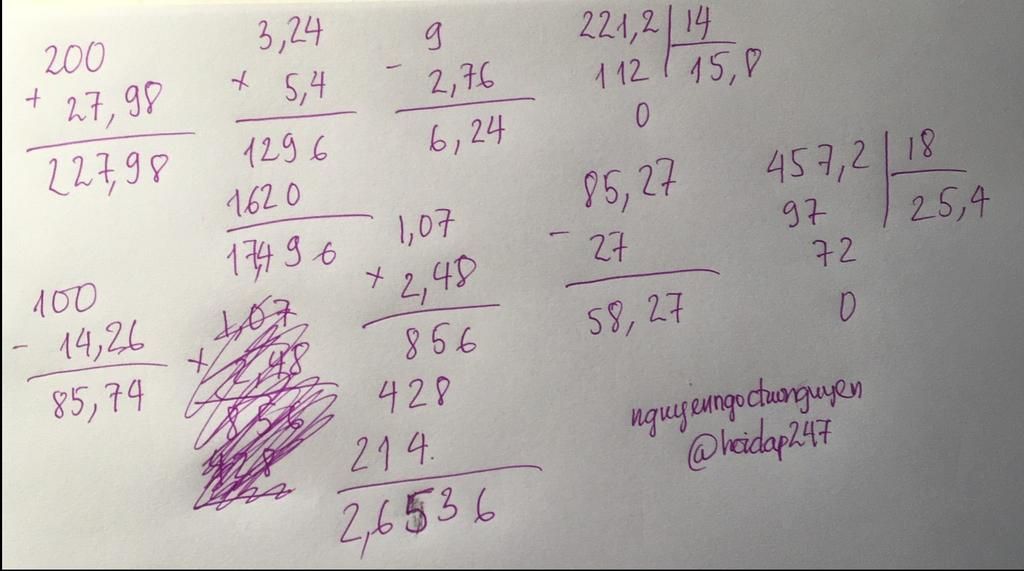 200
+ 27,98
227,98
3,24
× 5,4
1296
1620
17,496
9
- 2,76
6,24
221,2 14
112 15,8
0
100
- 14,26
85,74
1,07
× 2,48
856
428
1,07
× 2,48
856
428
214
2,6536
85,27
- 27
58,27
457,2 18
97 25,4
72
0
nguyenngoctuonguyen
@hoidap247